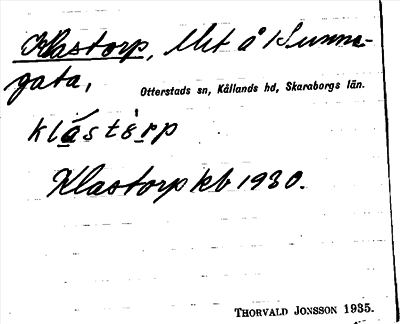 Klastorp, lht å Kunna-
gata,
Otterstads sn, Kållands hd, Skaraborgs län.
klástèrp
Klastorp kb 1930.
THORVALD JONSSON 1935.